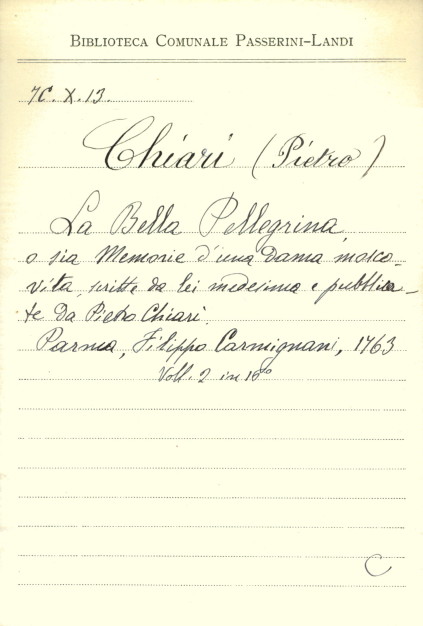 BIBLIOTECA COMUNALE PASSERINI-LANDI
7C. X. 13.
Chiari (Pietro)
La Bella Pellegrina
o sia Memorie d'una Dama mosco-
vita, scritte da lei medesima e pubblica-
te Da Pietro Chiari.
Parma, Filippo Carmignani, 1763
Voll. 2 in 16°
C